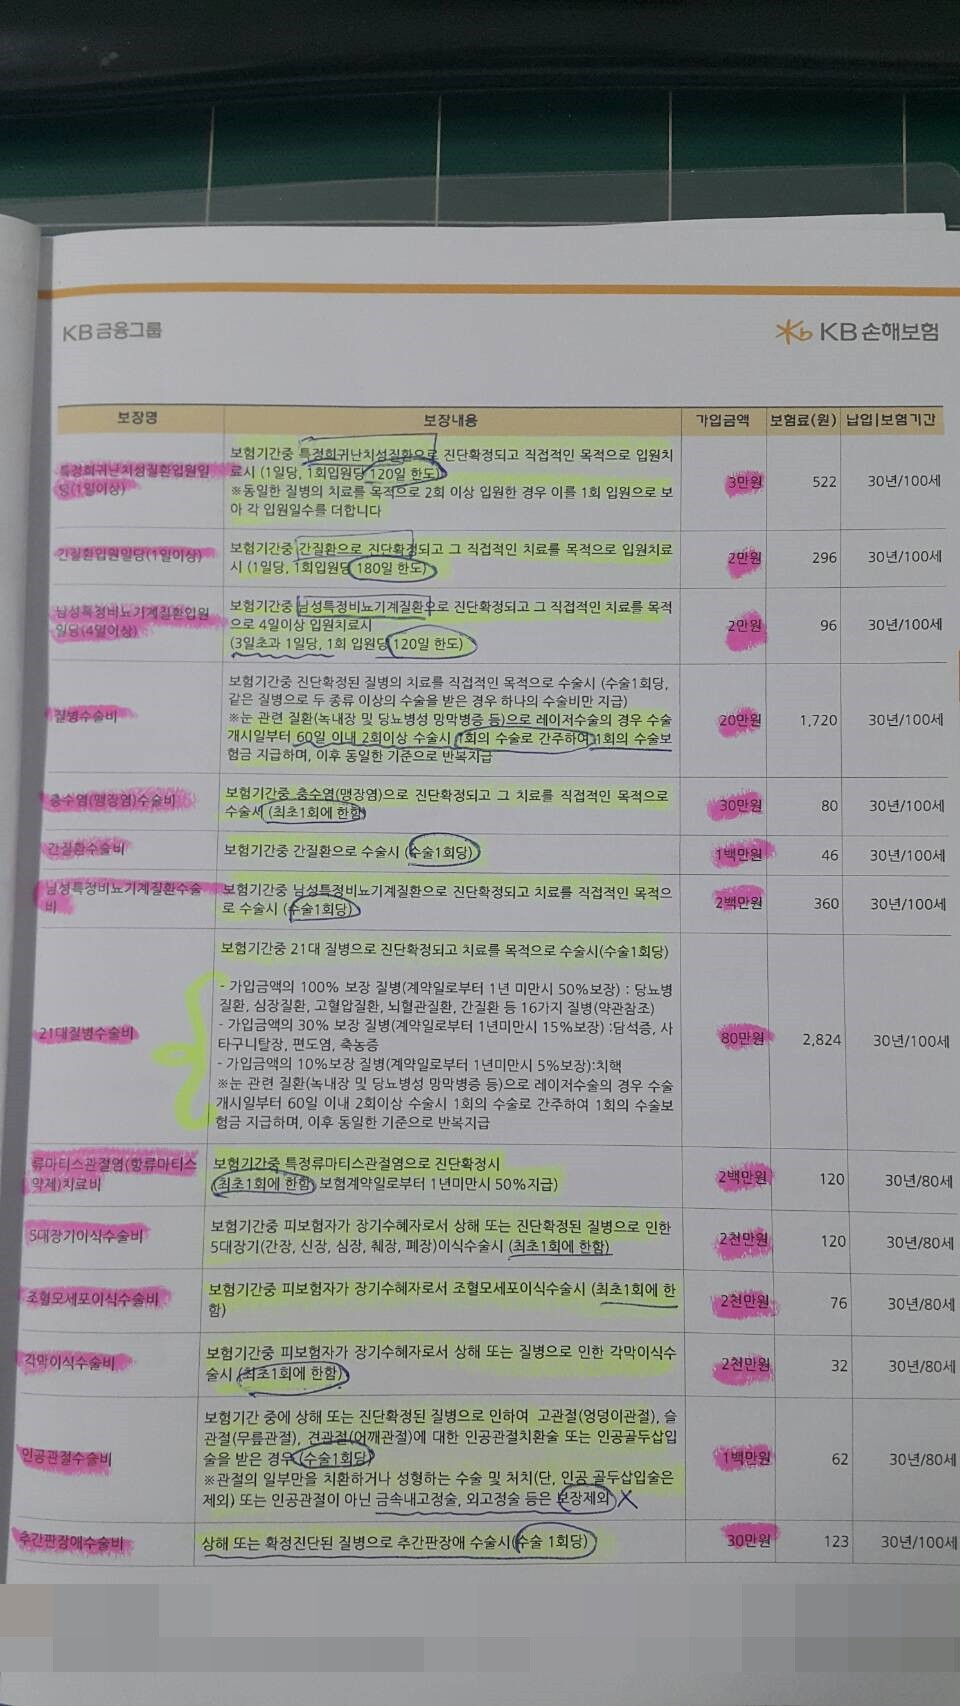 KB금융그룹
KB손해보험
보장명 보장내용 가입금액 보험료(원) 납입|보험기간
특정희귀난치성질환입원일
당(1일이상)
보험기간중 특정희귀난치성질환으로 진단확정되고 직접적인 목적으로 입원치
료시 (1일당, 1회입원당 120일 한도)
※동일한 질병의 치료를 목적으로 2회 이상 입원한 경우 이를 1회 입원으로 보
아 각 입원일수를 더합니다
3만원 522 30년/100세
간질환입원일당(1일이상)
보험기간중 간질환으로 진단확정되고 그 직접적인 치료를 목적으로 입원치료
시 (1일당, 1회입원당 180일 한도)
2만원 296 30년/100세
남성특정비뇨기계질환입원
일당(4일이상)
보험기간중 남성특정비뇨기계질환으로 진단확정되고 그 직접적인 치료를 목적
으로 4일이상 입원치료시
(3일초과 1일당, 1회 입원당 120일 한도)
2만원 96 30년/100세
질병수술비
보험기간중 진단확정된 질병의 치료를 직접적인 목적으로 수술시 (수술1회당,
같은 질병으로 두 종류 이상의 수술을 받은 경우 하나의 수술비만 지급)
※눈 관련 질환(녹내장 및 당뇨병성 망막병증 등)으로 레이저수술의 경우 수술
개시일부터 60일 이내 2회이상 수술시 1회의 수술로 간주하여 1회의 수술보
험금 지급하며, 이후 동일한 기준으로 반복지급
20만원 1,720 30년/100세
충수염(맹장염)수술비
보험기간중 충수염(맹장염)으로 진단확정되고 그 치료를 직접적인 목적으로
수술시 (최초1회에 한함)
30만원 80 30년/100세
간질환수술비
보험기간중 간질환으로 수술시 (수술1회당)
1백만원 46 30년/100세
남성특정비뇨기계질환수술
비
보험기간중 남성특정비뇨기계질환으로 진단확정되고 치료를 직접적인 목적으
로 수술시 (수술1회당)
2백만원 360 30년/100세
21대질병수술비
보험기간중 21대 질병으로 진단확정되고 치료를 목적으로 수술시(수술1회당)
- 가입금액의 100% 보장 질병(계약일로부터 1년 미만시 50%보장) : 당뇨병
질환, 심장질환, 고혈압질환, 뇌혈관질환, 간질환 등 16가지 질병(약관참조)
- 가입금액의 30% 보장 질병(계약일로부터 1년미만시 15%보장) :담석증, 사
타구니탈장, 편도염, 축농증
- 가입금액의 10%보장 질병(계약일로부터 1년미만시 5%보장):치핵
※눈 관련 질환(녹내장 및 당뇨병성 망막병증 등)으로 레이저수술의 경우 수술
개시일부터 60일 이내 2회이상 수술시 1회의 수술로 간주하여 1회의 수술보
험금 지급하며, 이후 동일한 기준으로 반복지급
80만원 2,824 30년/100세
류마티스관절염(항류마티스
약제)치료비
보험기간중 특정류마티스관절염으로 진단확정시
(최초1회에 한함, 보험계약일로부터 1년미만시 50%지급)
2백만원 120 30년/80세
5대장기이식수술비
보험기간중 피보험자가 장기수혜자로서 상해 또는 진단확정된 질병으로 인한
5대장기(간장, 신장, 심장, 췌장, 폐장)이식수술시 (최초1회에 한함)
2천만원 120 30년/80세
조혈모세포이식수술비
보험기간중 피보험자가 장기수혜자로서 조혈모세포이식수술시 (최초1회에 한
함)
2천만원 76 30년/80세
각막이식수술비
보험기간중 피보험자가 장기수혜자로서 상해 또는 질병으로 인한 각막이식수
술시 (최초1회에 한함)
2천만원 32 30년/80세
인공관절수술비
보험기간 중에 상해 또는 진단확정된 질병으로 인하여 고관절(엉덩이관절), 슬
관절(무릎관절), 견관절(어깨관절)에 대한 인공관절치환술 또는 인공골두삽입
술을 받은 경우 (수술1회당)
※관절의 일부만을 치환하거나 성형하는 수술 및 처치(단, 인공 골두삽입술은
제외) 또는 인공관절이 아닌 금속내고정술, 외고정술 등은 보장제외 X
1백만원 62 30년/80세
추간판장애수술비
상해 또는 확정진단된 질병으로 추간판장애 수술시(수술 1회당)
30만원 123 30년/100세